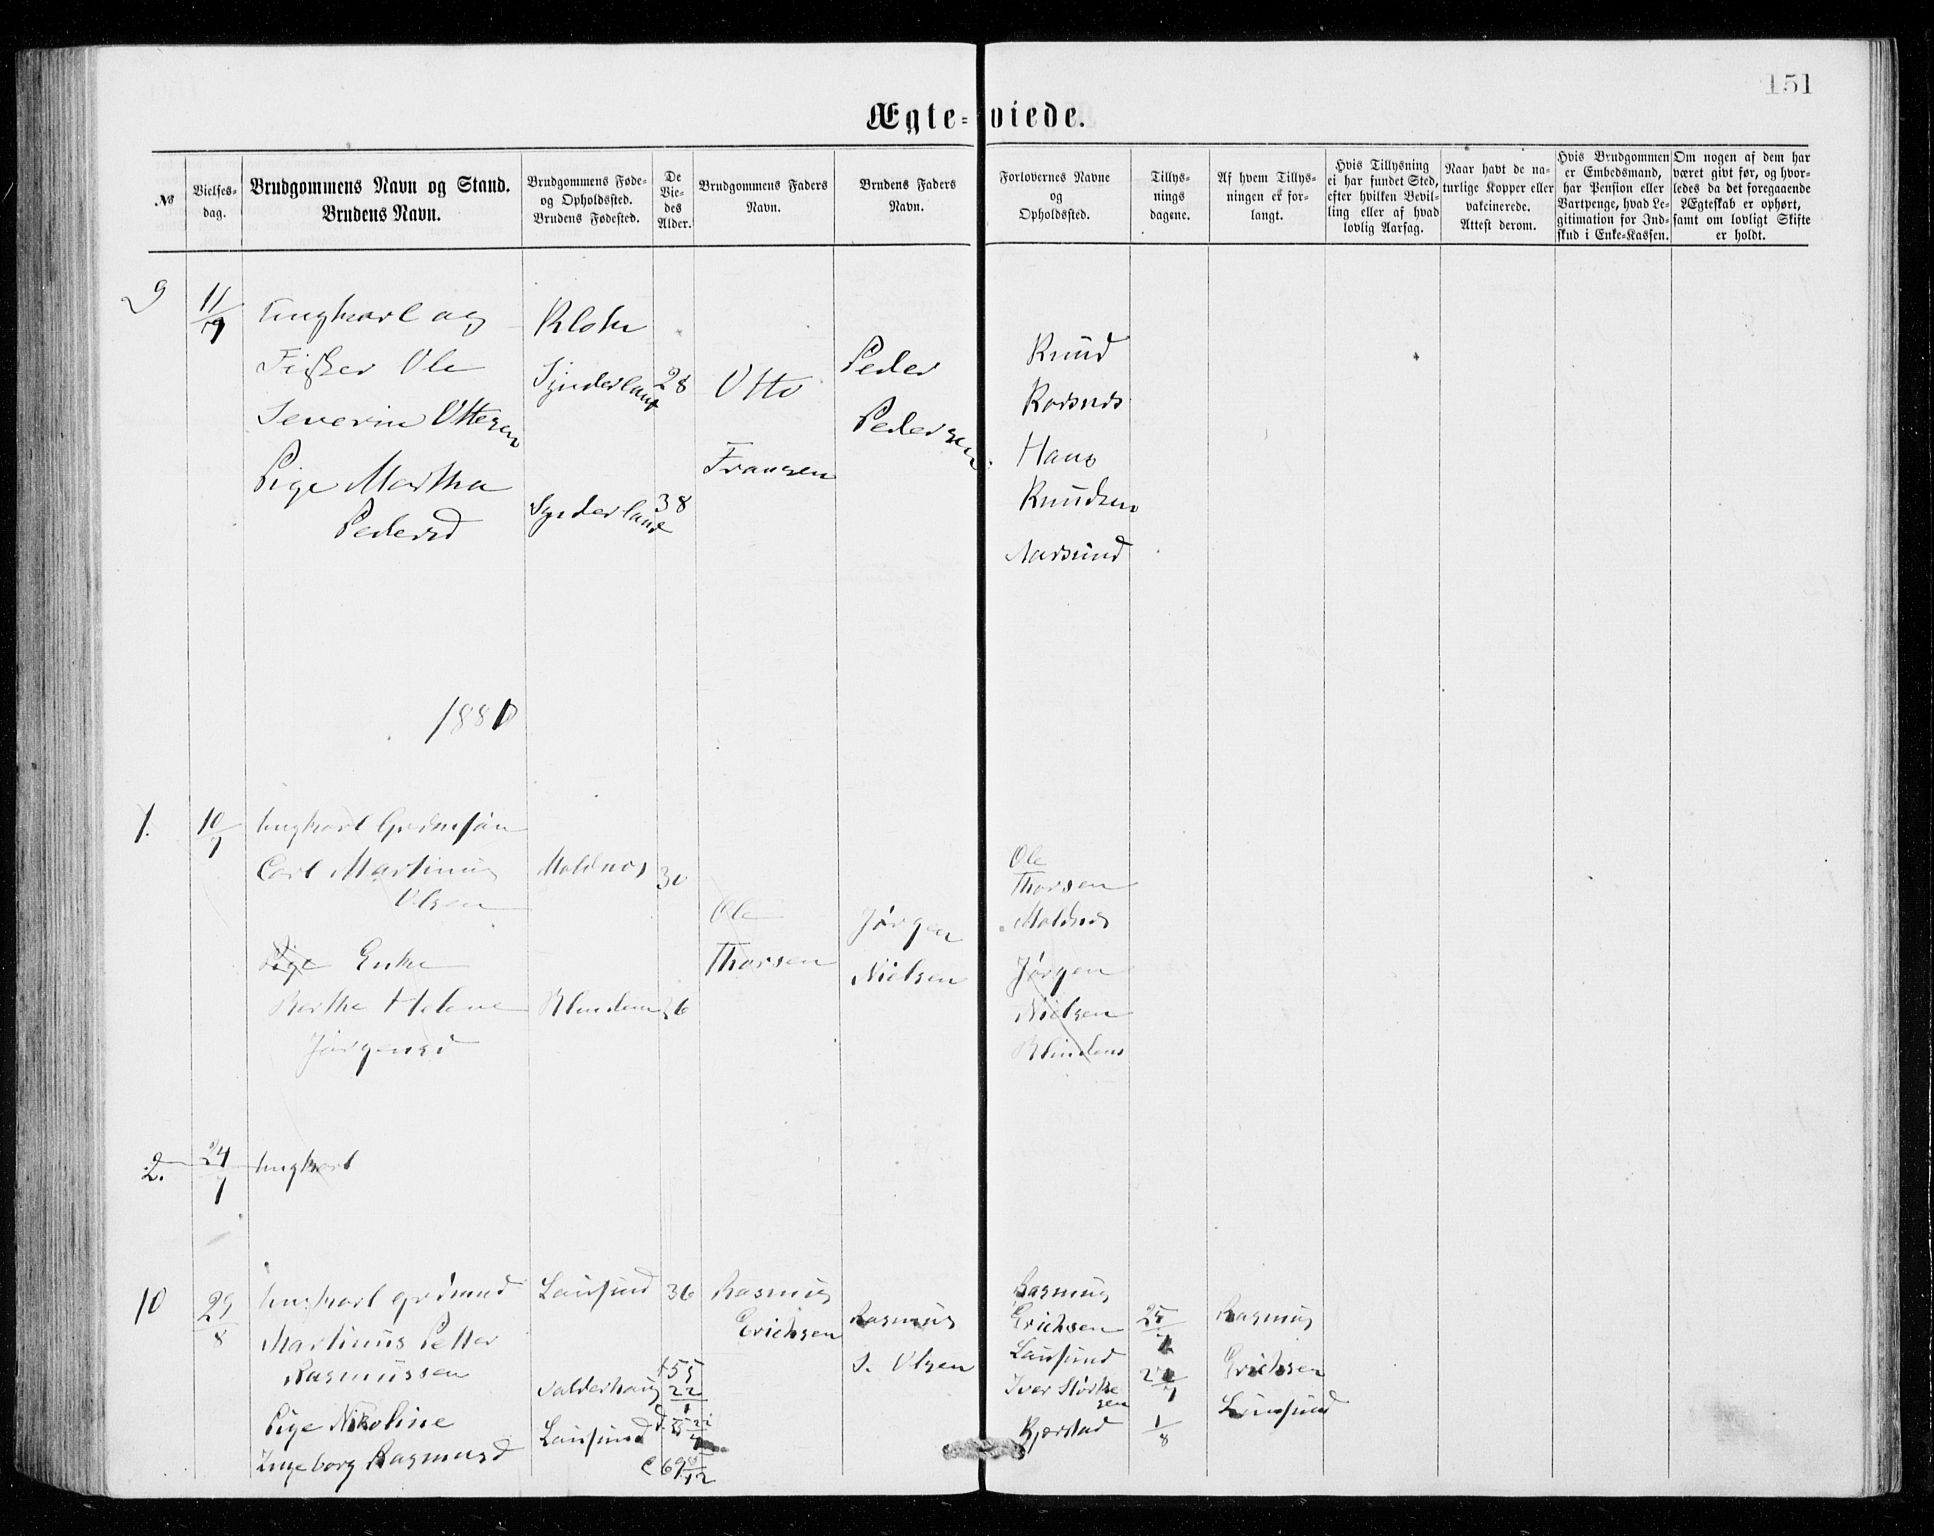 151
Ægte-viede.
№
Vielses-
dag.
Brudgommens Navn og Stand.
Brudens Navn.
Brudgommens Føde-
og Opholdssted.
Brudens Fødested.
De
Vie-
des
Alder.
Brudgommens Faders
Navn.
Brudens Faders
Navn.
Forlovernes Navne
og
Opholdssted.
Tillys-
nings
dagene.
Af hvem Tillys-
ningen er for-
langt.
Hvis Tillysning
ei har fundet Sted,
efter hvilken Bevil-
ling eller af hvad
lovlig Aarsag.
Naar havt de na-
turlige Kopper eller
vakcinerede.
Attest derom.
Hvis Brudgommen
er Embedsmand,
har Pension eller
Vartpenge, hvad Le-
gitimation for Ind-
skud i Enke-Kassen.
Om nogen af dem har
været givt før, og hvor-
ledes da det foregaaende
Ægteskab er ophørt,
samt om lovligt Skifte
er holdt.
9
11/9
Ungkarl og
Fisker Ole
Severin Ottesen
Pige Martha
Pedersd
Synderland 28
Synderland 38
Otto
Fransen
Peder
Pedersen
Knud
Hans
Knudsen
Aarsund
1880
1.
10/7
Ungkarl
Carl Martinus
Olsen
Pige Enke
Berthe Helene
Jørgensd
Moldnes 30
Blindem 36
Ole
Thorsen
Jørgen
Nielsen
Ole
Thorsen
Moldnes
Jørgen
Nielsen
Blindem
2.
24/7
Ungkarl
10
29/8
Ungkarl grdmnd
Martinus Petter
Rasmussen
Pige Nikoline
Ingeborg Rasmusd
Lausund 36
Valderhaug
Lausund
Rasmus
Erichsen
Rasmus
S. Olsen
Rasmus
Erichsen
Lausund
Iver Størke
sen
Bjørstad
25/7
1/8
Rasmus
Erichsen
Lausund